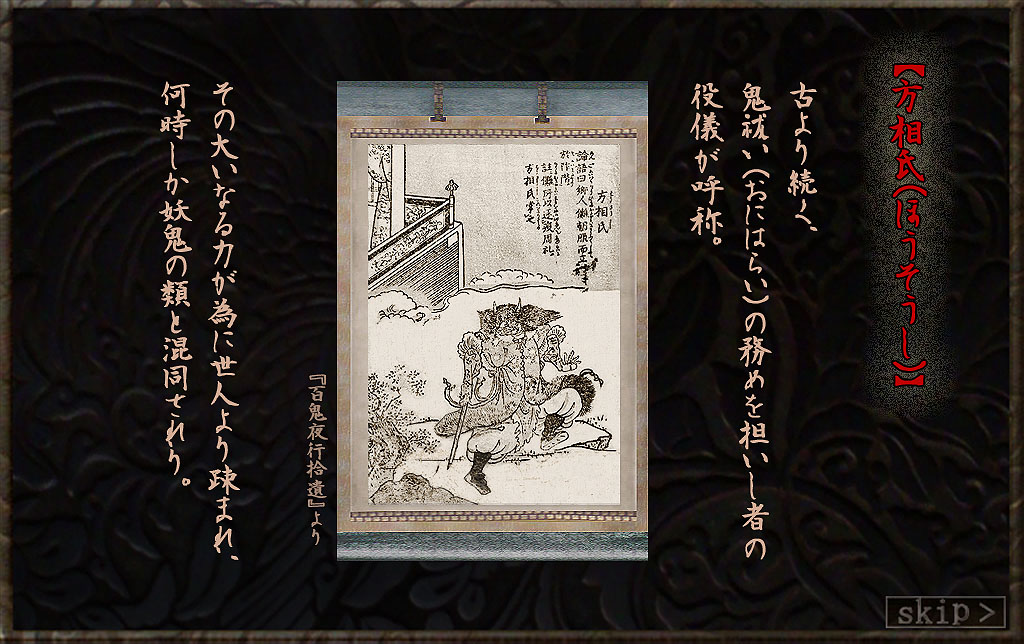 【方相氏(ほうそうし)】
古より続く、
鬼祓い(おにはらい)の務めを担いし者の
役儀が呼称。
方相氏
論語曰郷人儺朝服而立
於阼階
註儺所以逐疫周礼
方相氏掌之
『百鬼夜行拾遺』より
その大いなる力が為に世人より疎まれ、
何時しか妖鬼の類と混同されり。
skip >